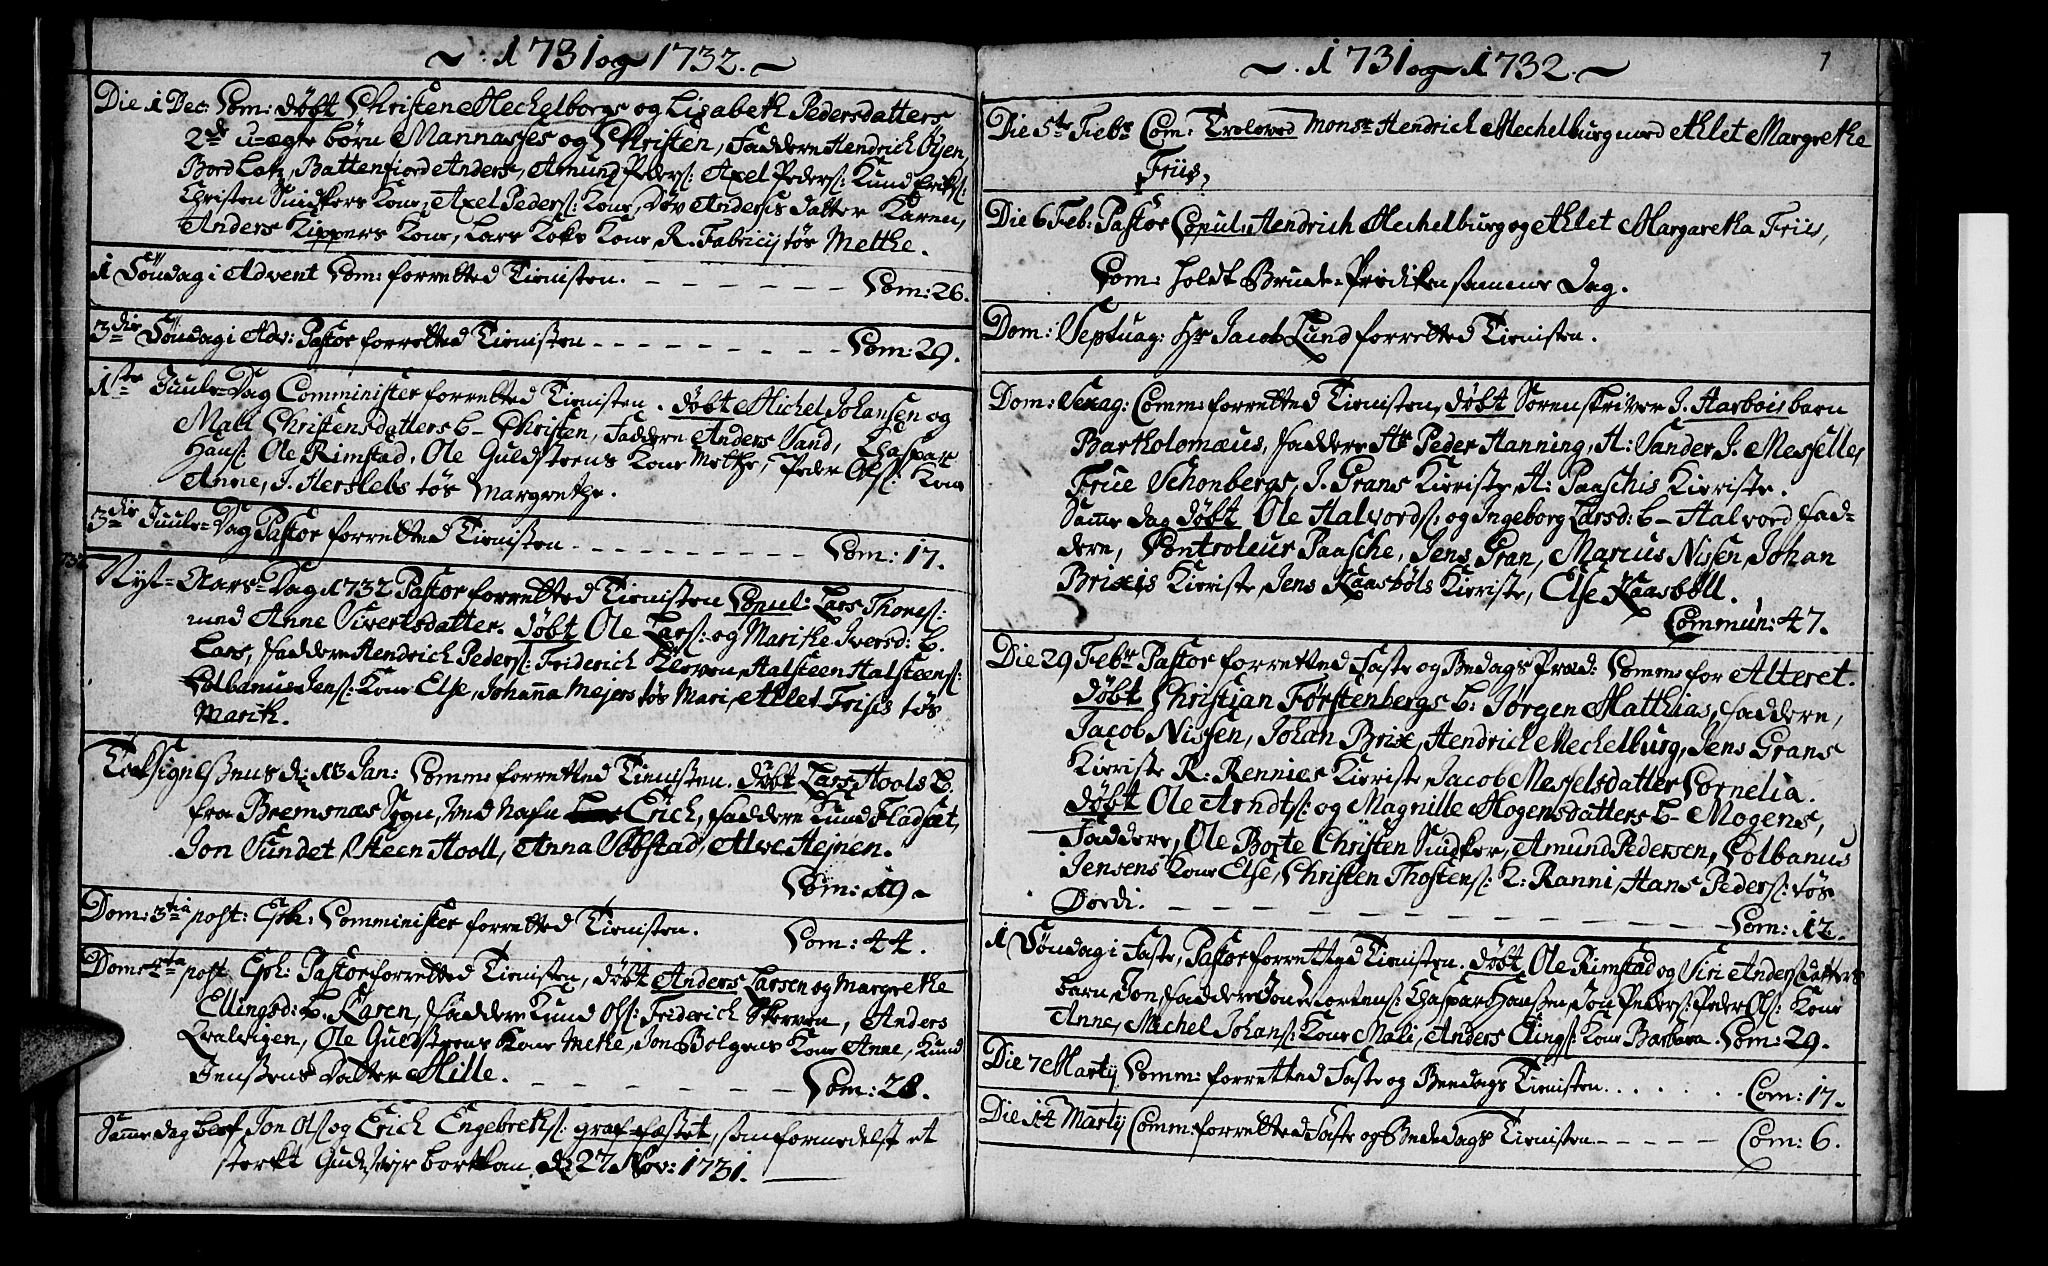 1731 og 1732.
Die 1 Dec: Com: døbt Christen Mechelborgs og Lisabeth Pedersdatters
2de u-ægte børn Mannasses og Christen, Faddere Hendrich Øyen,
Bord Lotz, Battenfiord Anders, Amund Peders: Axel Peders: Knud Eriks:
Christen Snidkers Kone, Axel Peders: Kone, Døv Andersis datter Karen,
Anders Kippers Kone, Lars Koks Kone R. Fabricij tøs Methe.
1 Søndag i Advent Com: forretted Tienisten. Com: 26.
3die Søndag i Adv: Pastor forretted Tienisten Com: 29.
1ste Juule-Dag Comminister forretted Tienisten. døbt Michel Johansen og
Mali Christensdatters b- Christen, Faddere Anders Sand, Chaspar
Hans: Ole Rimstad, Ole Guldsteens Kone Methe, Peder Ols: Kone
Anne, J. Herslebs tøs Margrethe.
3die Juule-Dag Pastor forretted Tienisten Com: 17.
732 Nyt-Aars-Dag 1732 Pastor forretted Tienisten Copul: Lars Thores:
med Anne Sivertsdatter. døbt Ole Lars: og Marithe Iversd: b.
Lars, Faddere Hendrich Peders: Friderich Skerven, Halsteen Halsteens:
Colbanus Jens: Kone Else, Johanna Mejers tøs Mari, Athlet Friisis tøs
Marith.
Tacksigelsens d: 13 Jan: Comm: forretted Tienisten. døbt Lars Hools b.
fra Bremsnæs Sogn, ved Nafn Erich, Faddere Knud Fladset,
Jon Sundet, Steen Hooll, Anna Vebstad, Alve Hejnen.
Com: 19-
Dom: 3tia post: Eph: Comminister forretted Tienisten. Com: 44.
Dom: 4ta post Eph: Pastor forretted Tienisten, døbt Anders Larsen og Margrethe
Ellingsd: b. Karen, Faddere Knud Ols: Friderich Skerven, Anders
Qvalvigen, Ole Guldsteens Kone Methe, Jon Bolgens Kone Anne, Knud
Jenssens Datter Mille. Com: 28.
Samme dag blef Jon Ols og Erich Engebreths: graf-fæstet, som formedelst et
sterkt Guds Vejr bortkom d: 27 Nov: 1731.
1731 og 1732. 7
Die 5te Febr Com: Troloved Mons: Hendrich Mechelburg med Athlet Margrethe
Friis,
Die 6 Feb: Pastor Copul: Hendrich Mechelburg og Athlet Margaretha Friis,
Com: holdt Brude-Prediken samme Dag.
Dom: Septuag: Hr Jacob Lund forretted Tienisten.
Dom: Sexag: Comm: forretted Tienisten, døbt Sorenskriver J. Harbois barn
Bartholomæus, Faddere Hr Peder Hanning, H: Sander J. Messelle,
Frue Schonbergs, J. Grans Kieriste, H: Paaschis Kieriste.
Samme dag døbt Ole Halvords: og Ingeborg Larsd: b- Halvord Fad-
dere, Controleur Paasche, Jens Gran, Marcus Nissen, Johan
Brixis Kieriste, Jens Kaasbøls Kieriste, Else Kaasbøll.
Commun: 47.
Die 29 Febr Pastor forretted Faste og Bedags Præd: Comm: for Alteret.
døbt Christian Førstenbergs b: Jørgen Matthias, Faddere,
Jacob Nissen, Johan Brix, Hendrich Mechelburg, Jens Grans
Kieriste R: Rennies Kieriste, Jacob Messelsdatter Cornelia.
døbt Ole Arndts: og Magnille Mogensdatters b- Mogens,
Faddere, Ole Boxte Christen Snidker, Amund Pedersen, Colbanus
Jensens Kone Else, Christen Thostens: K: Ranni, Hans Peders: tøs
Dordi. Com: 12.
1 Søndag i Faste, Pastor forretted Tienisten. døbt Ole Rimstad og Siri Andersdatters
barn, Jon, Faddere Jon Mortens: Chaspar Hanssen, Jon Peders: Peder Ols: Kone
Anne, Michel Johans: Kone Mali, Anders Elings: Kone Barbara. Com: 29.
Die 7 Martij Comm: forretted Faste og Beedags Tienisten. Com: 17.
Die 14 Martij Comm: forretted Faste og Bededags Tienisten Com: 6.